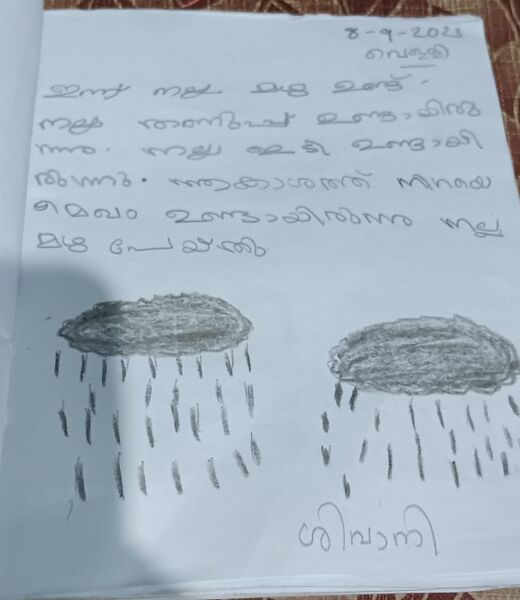 8-9-2023
വെള്ളി
ഇന്ന് നല്ല മഴ ഉണ്ട്.
നല്ല തണുപ്പ് ഉണ്ടായിരു
ന്നു. നല്ല ഇടി ഉണ്ടായി
രുന്നു. ആകാശത്ത് നിറയെ
മെഘം ഉണ്ടായിരുന്നു നല്ല
മഴ പേയ്തു
ശിവാനി